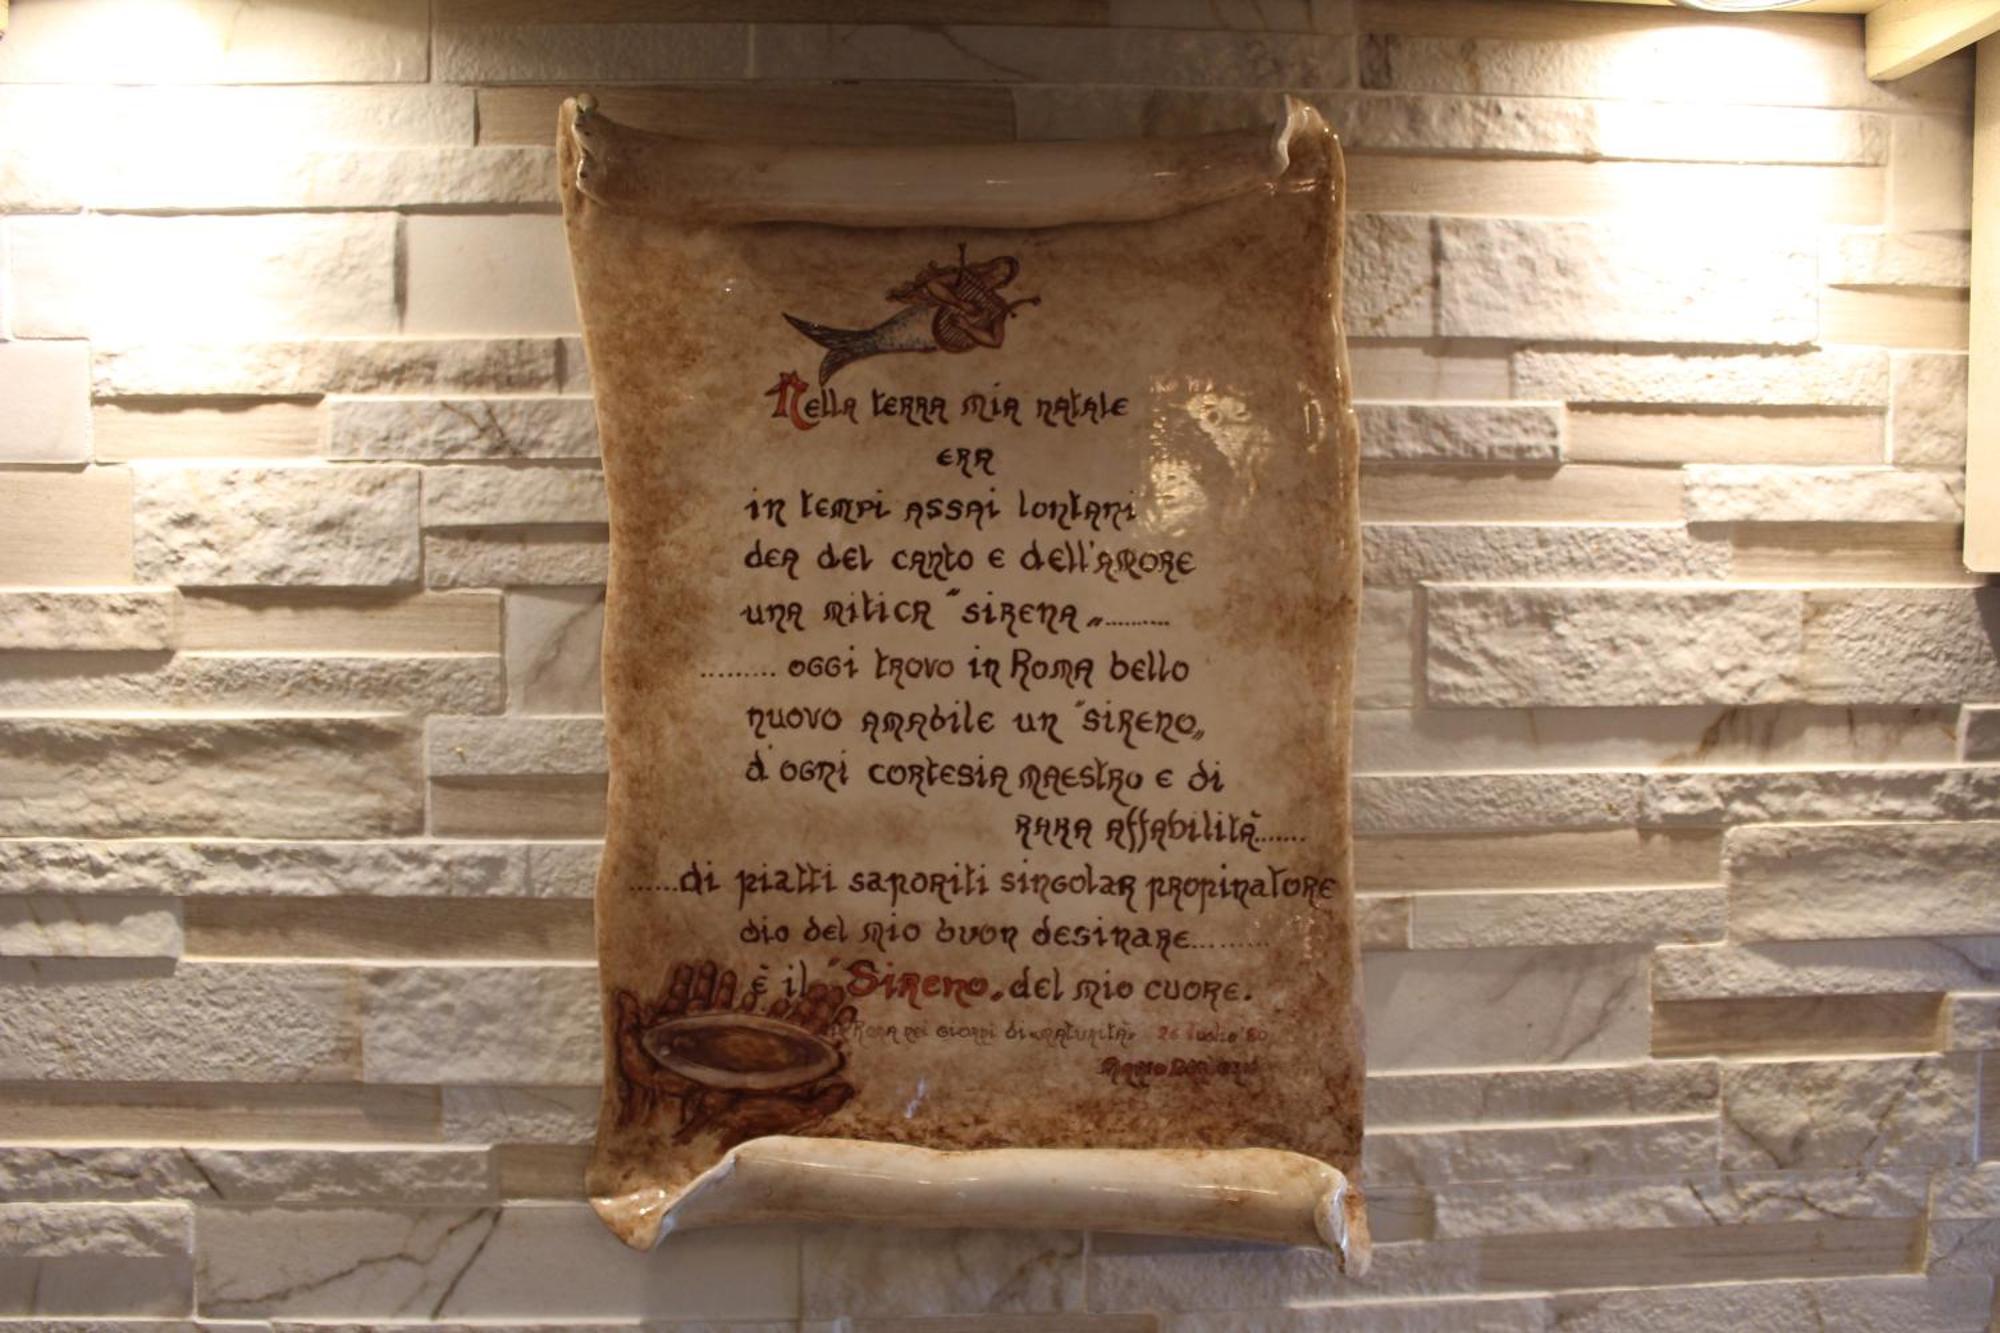 Nella terra mia natale
era
in tempi assai lontani
dea del canto e dell'amore
una mitica "sirena„..........
......... oggi trovo in Roma bello
nuovo amabile un "sireno„
d'ogni cortesia maestro e di
rara affabilità.......
......di piatti saporiti singolar propinatore
dio del mio buon desinare..........
è il "Sireno„ del mio cuore.
Roma nei giorni di «maturità» 26 luglio '80